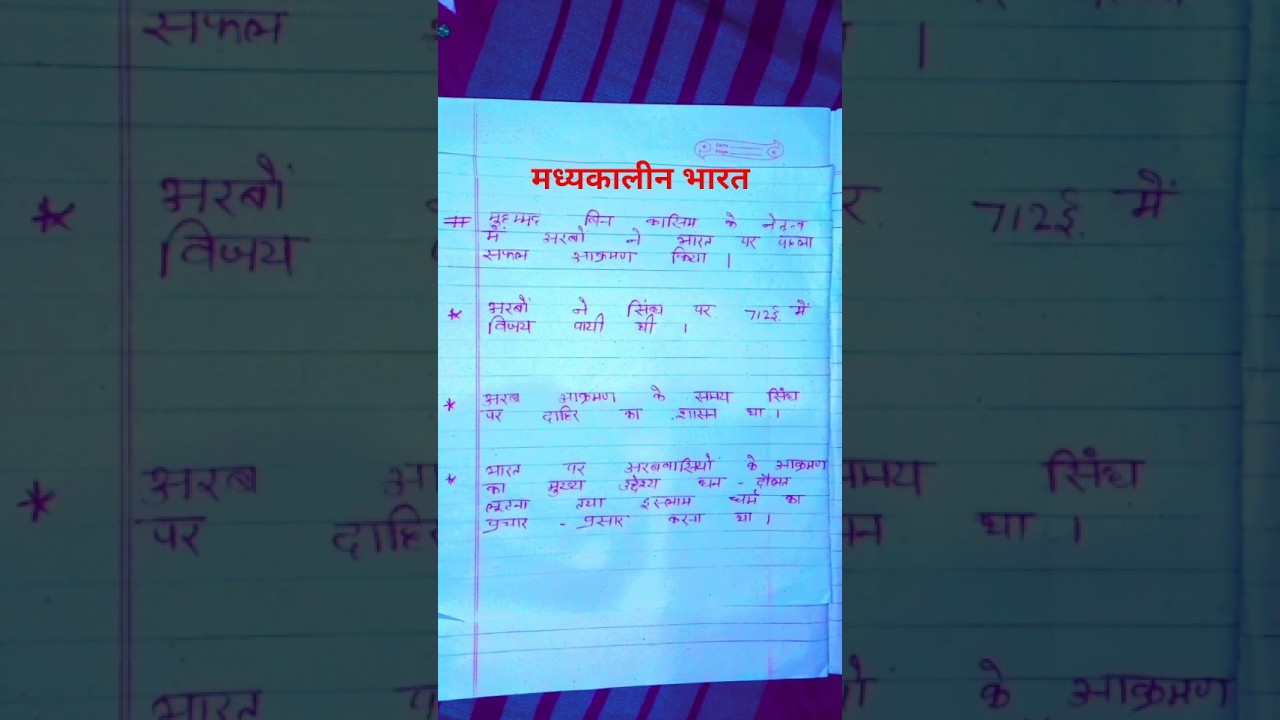 मध्यकालीन भारत
# मुहम्मद बिन कासिम के नेतृत्व
में अरबों ने भारत पर पहला
सफल आक्रमण किया ।
* अरबों ने सिंध पर 712ई. में
विजय पायी थी ।
* अरब आक्रमण के समय सिंध
पर दाहिर का शासन था ।
* भारत पर अरबवासियों के आक्रमण
का मुख्य उद्देश्य धन - दौलत
लूटना तथा इस्लाम धर्म का
प्रचार - प्रसार करना था ।